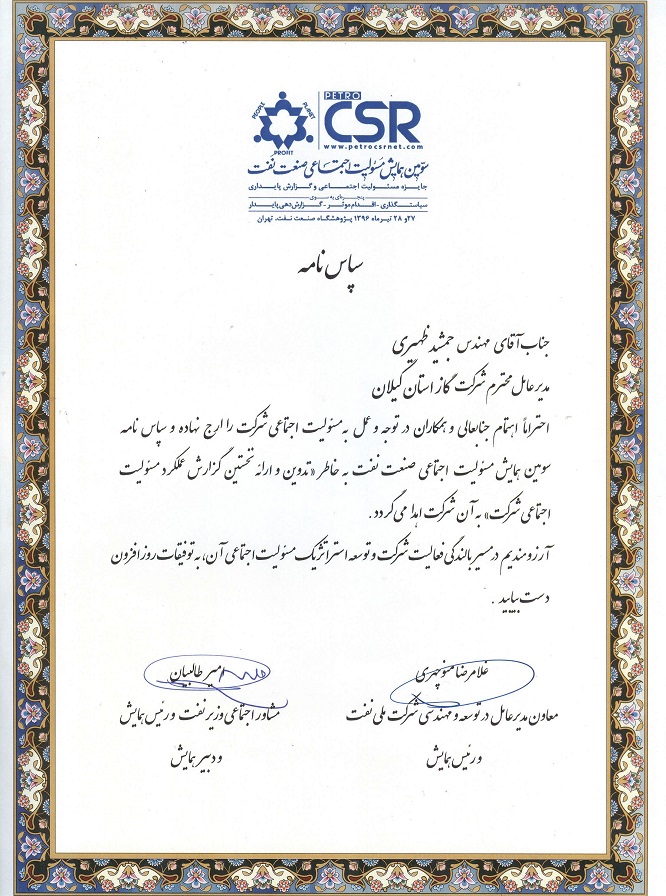 PETRO
CSR
www.petrocsrnet.com
PEOPLE
PLANET
PROFIT
سومین همایش مسئولیت اجتماعی صنعت نفت
جایزه مسئولیت اجتماعی و گزارش پایداری
پنجره‌ای به سوی
سیاستگذاری - اقدام موثر - گزارش‌دهی پایدار
۲۷ و ۲۸ تیرماه ۱۳۹۶ پژوهشگاه صنعت نفت، تهران
سپاس نامه
جناب آقای مهندس جمشید ظهیری
مدیرعامل محترم شرکت گاز استان گیلان
احتراماً اهتمام جنابعالی و همکاران در توجه و عمل به مسئولیت اجتماعی شرکت را ارج نهاده و سپاس نامه
سومین همایش مسئولیت اجتماعی صنعت نفت به خاطر «تدوین و ارائه نخستین گزارش عملکرد مسئولیت
اجتماعی شرکت» به آن شرکت اهدا می‌گردد.
آرزومندیم در مسیر بالندگی فعالیت شرکت و توسعه استراتژیک مسئولیت اجتماعی آن، به توفیقات روزافزون
دست بیابید .
غلامرضا منوچهری
معاون مدیرعامل در توسعه و مهندسی شرکت ملی نفت
و رئیس همایش
امیر طالبیان
مشاور اجتماعی وزیر نفت و رئیس همایش
و دبیر همایش